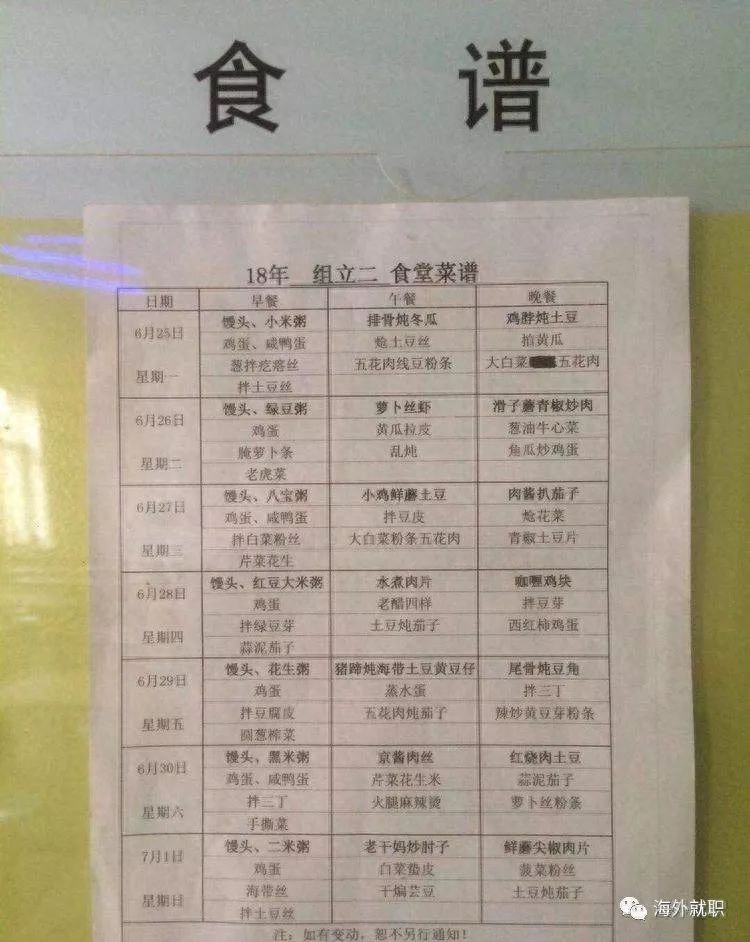 食 谱
18年 组立二 食堂菜谱
日期 早餐 午餐 晚餐
6月25日 馒头、小米粥 排骨炖冬瓜 鸡脖炖土豆
鸡蛋、咸鸭蛋 炝土豆丝 拍黄瓜
星期一 葱拌疙瘩丝 五花肉线豆粉条 大白菜 五花肉
拌土豆丝
6月26日 馒头、绿豆粥 萝卜丝虾 滑子蘑青椒炒肉
鸡蛋 黄瓜拉皮 葱油牛心菜
星期二 腌萝卜条 乱炖 焦瓜炒鸡蛋
老虎菜
6月27日 馒头、八宝粥 小鸡鲜蘑土豆 肉酱扒茄子
鸡蛋、咸鸭蛋 拌豆皮 炝花菜
星期三 拌白菜粉丝 大白菜粉条五花肉 青椒土豆片
芹菜花生
6月28日 馒头、红豆大米粥 水煮肉片 咖喱鸡块
鸡蛋 老醋四样 拌豆芽
星期四 拌绿豆芽 土豆炖茄子 西红柿鸡蛋
蒜泥茄子
6月29日 馒头、花生粥 猪蹄炖海带土豆黄豆仔 尾骨炖豆角
鸡蛋 蒸水蛋 拌三丁
星期五 拌豆腐皮 五花肉炖茄子 辣炒黄豆芽粉条
圆葱榨菜
6月30日 馒头、黑米粥 京酱肉丝 红烧肉土豆
鸡蛋、咸鸭蛋 芹菜花生米 蒜泥茄子
星期六 拌三丁 火腿麻辣烫 萝卜丝粉条
手撕菜
7月1日 馒头、二米粥 老干妈炒肘子 鲜蘑尖椒肉片
鸡蛋 白菜蛰皮 菠菜粉丝
星期日 海带丝 干煸芸豆 土豆炖茄子
拌土豆丝
注：如有变动，恕不另行通知！
海外就职